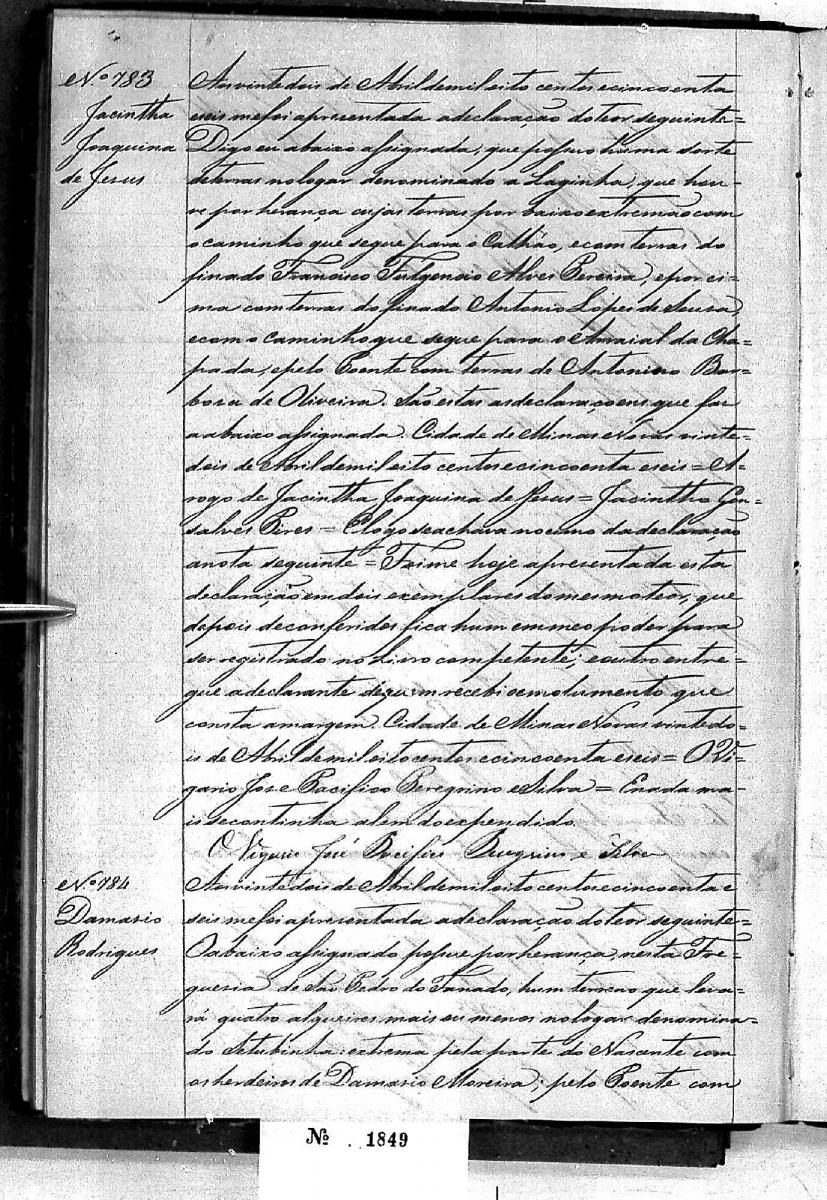 Nº 783
Jacintha
Joaquina
de Jesus
Aos vinte dois de Abril de mil oito centos e cincoenta
e seis me foi apresentada a declaração do teor seguinte =
Digo eu abaixo assignada, que possuo huma sorte
de terras no logar denominado a Laginha, que hou-
ve por herança cujas terras por baixo extremão com
o caminho que segue para o Calhão, e com terras do
finado Francisco Fulgencio Alves Pereira, e por ci-
ma com terras do finado Antonio Lopes de Sousa,
e com o caminho que segue para o Arraial da Cha-
pada, e pelo Poente com terras de Antonino Bar-
bosa de Oliveira. São estas as declaraçoens que faz
a abaixo assignada. Cidade de Minas Novas vinte-
dois de Abril de mil oito centos e cincoenta e seis = A-
rogo de Jacintha Joaquina de Jesus = Jacintho Gon-
salves Pires = E logo se achava no cimo da declaração
a nota seguinte = Foi me hoje apresentada esta
declaração em dois exemplares do mesmo teor, que
depois de conferidos fica hum em meo poder para
ser registrado no Livro competente; e outro entre-
gue a declarante de quem recebi o emolumento que
consta a margem. Cidade de Minas Novas vinte do-
is de Abril de mil oito centos e cincoenta e seis = O Vi-
gario Jose Pacifico Peregrino e Silva = E nada ma-
is se continha alem do expendido.
O Vigario José Pacifico Peregrino e Silva
Nº 784
Damasio
Rodrigues
Aos vinte dois de Abril de mil oito centos e cincoenta e
seis me foi apresentada a declaração do teor seguinte =
O abaixo assignado possue por herança, nesta Fre-
guesia de São Pedro do Fanado, hum terreno que leva-
rá quatro alqueires mais ou menos no logar denomina-
do Setubinha: extrema pela parte do Nascente com
os herdeiros de Damasio Moreira; pelo Poente com
Nº 1849